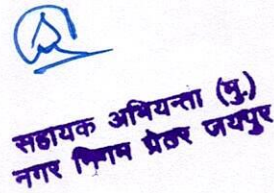 सहायक अभियन्ता (मु.)
नगर निगम ग्रेटर जयपुर